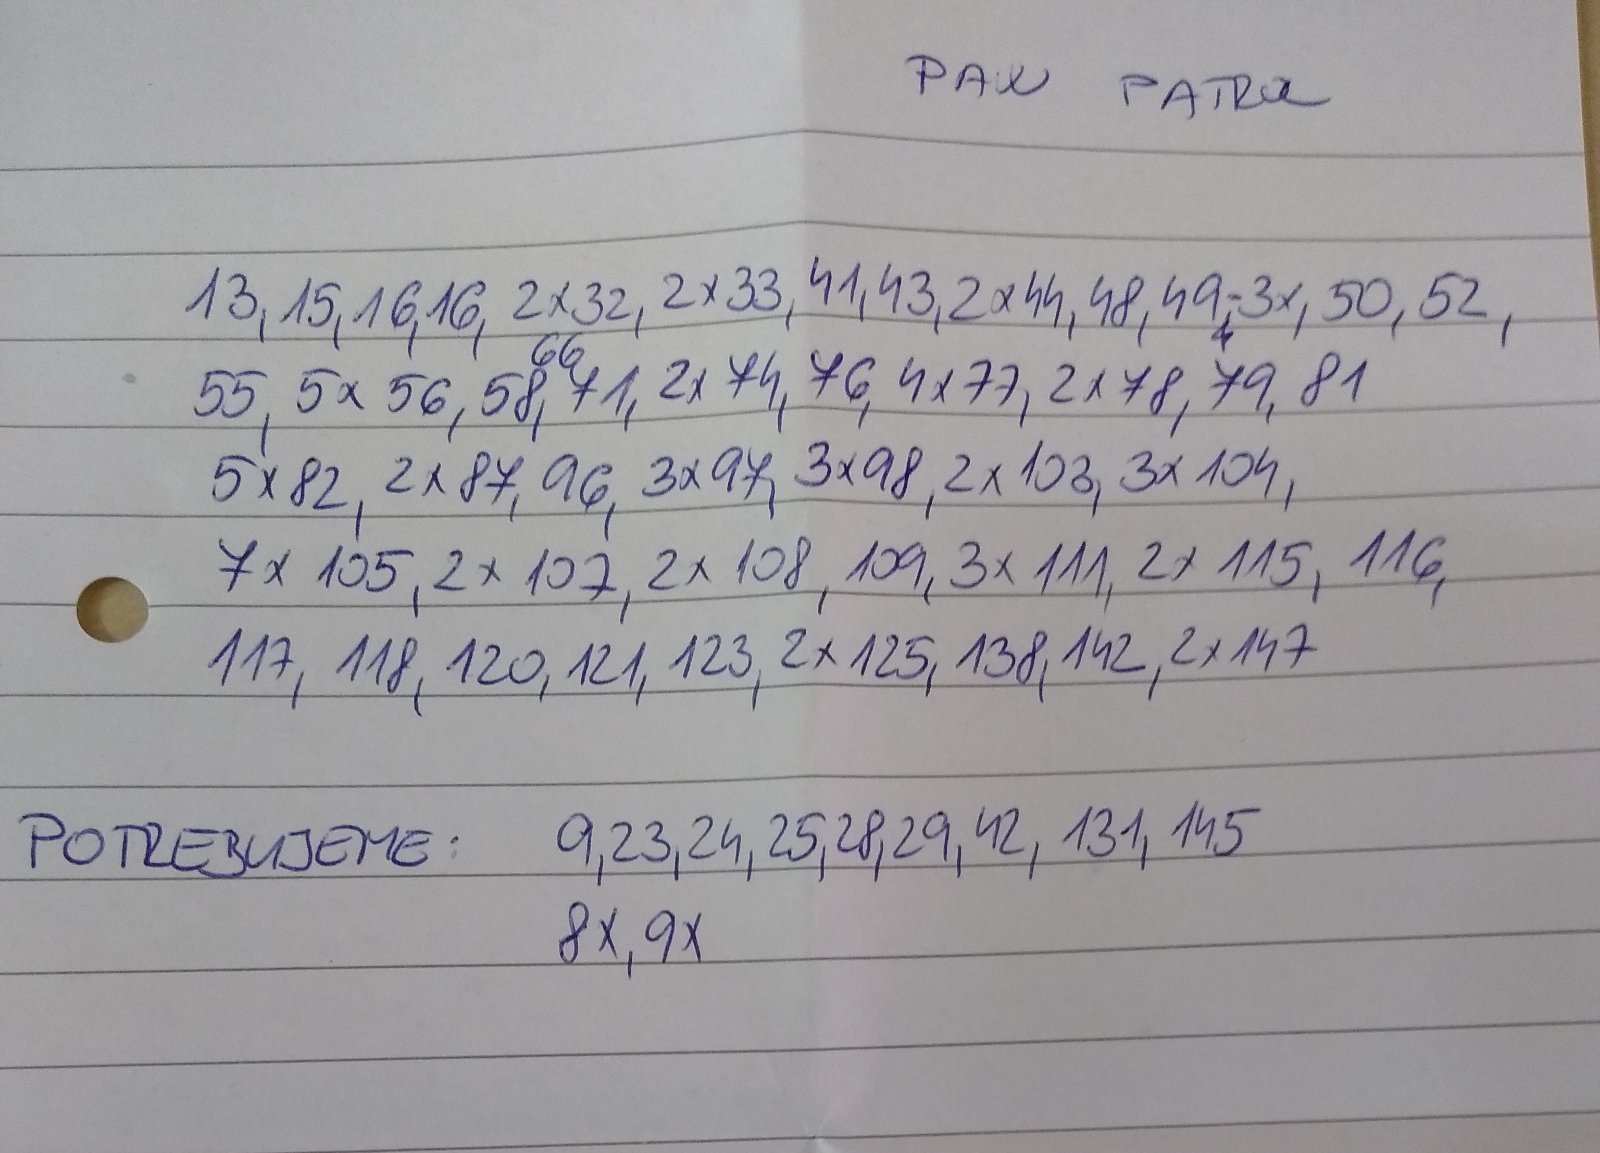 PAW PATROL
13, 15, 16, 16, 2x32, 2x33, 41, 43, 2x44, 48, 49-3x, 50, 52,
66
55, 5x 56, 58, 71, 2x 74, 76, 4x77, 2x78, 79, 81
5x82, 2x87, 96, 3x97, 3x98, 2x103, 3x104,
7x 105, 2x 107, 2x 108, 109, 3x 111, 2x 115, 116,
117, 118, 120, 121, 123, 2x 125, 138, 142, 2x147
POTREBUJEME: 9, 23, 24, 25, 28, 29, 42, 131, 145
8x, 9x